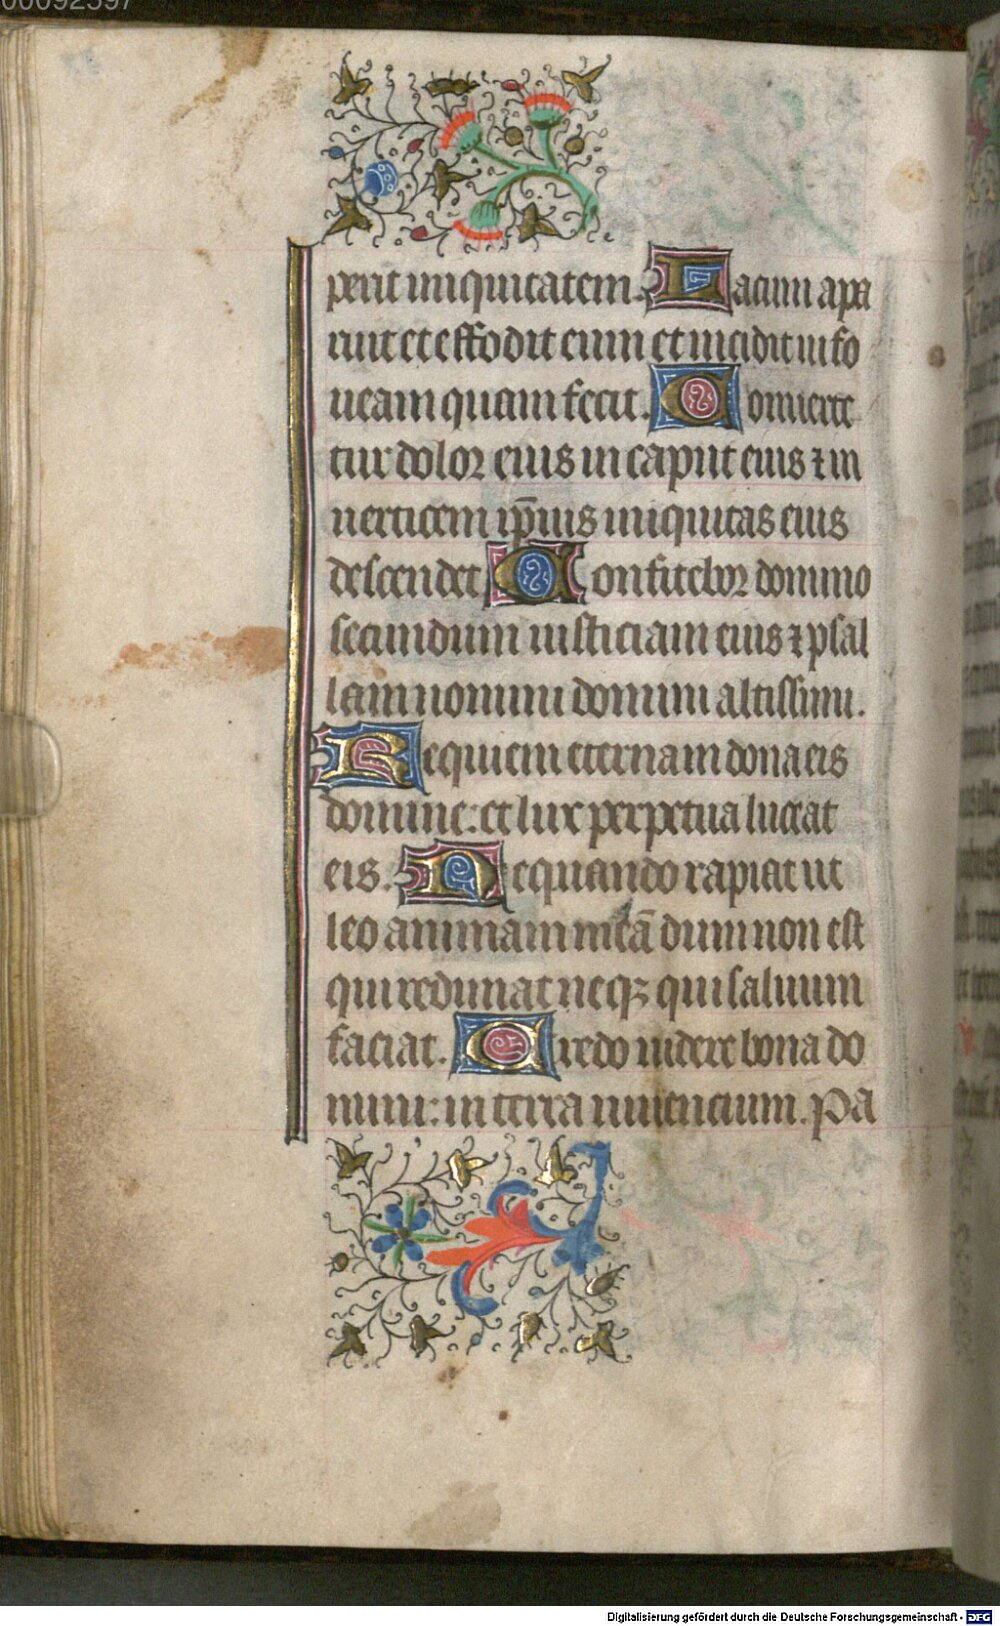 00092397
perit iniquitatem. Lacum apa
ruit et effodit eum et incidit in fo
ueam quam fecit. Conuerte
tur dolor eius in caput eius ⁊ in
uerticem ip̄ius iniquitas eius
descendet Confitebor domino
secundum iusticiam eius ⁊ psal
lam nomini domini altissimi.
Requiem eternam dona eis
domine: et lux perpetua luceat
eis. Nequando rapiat ut
leo animam meā dum non est
qui redimat neqꝫ qui saluum
faciat. Credo uidere bona do
mini: in terra uiuencium. Pa
Digitalisierung gefördert durch die Deutsche Forschungsgemeinschaft - DFG